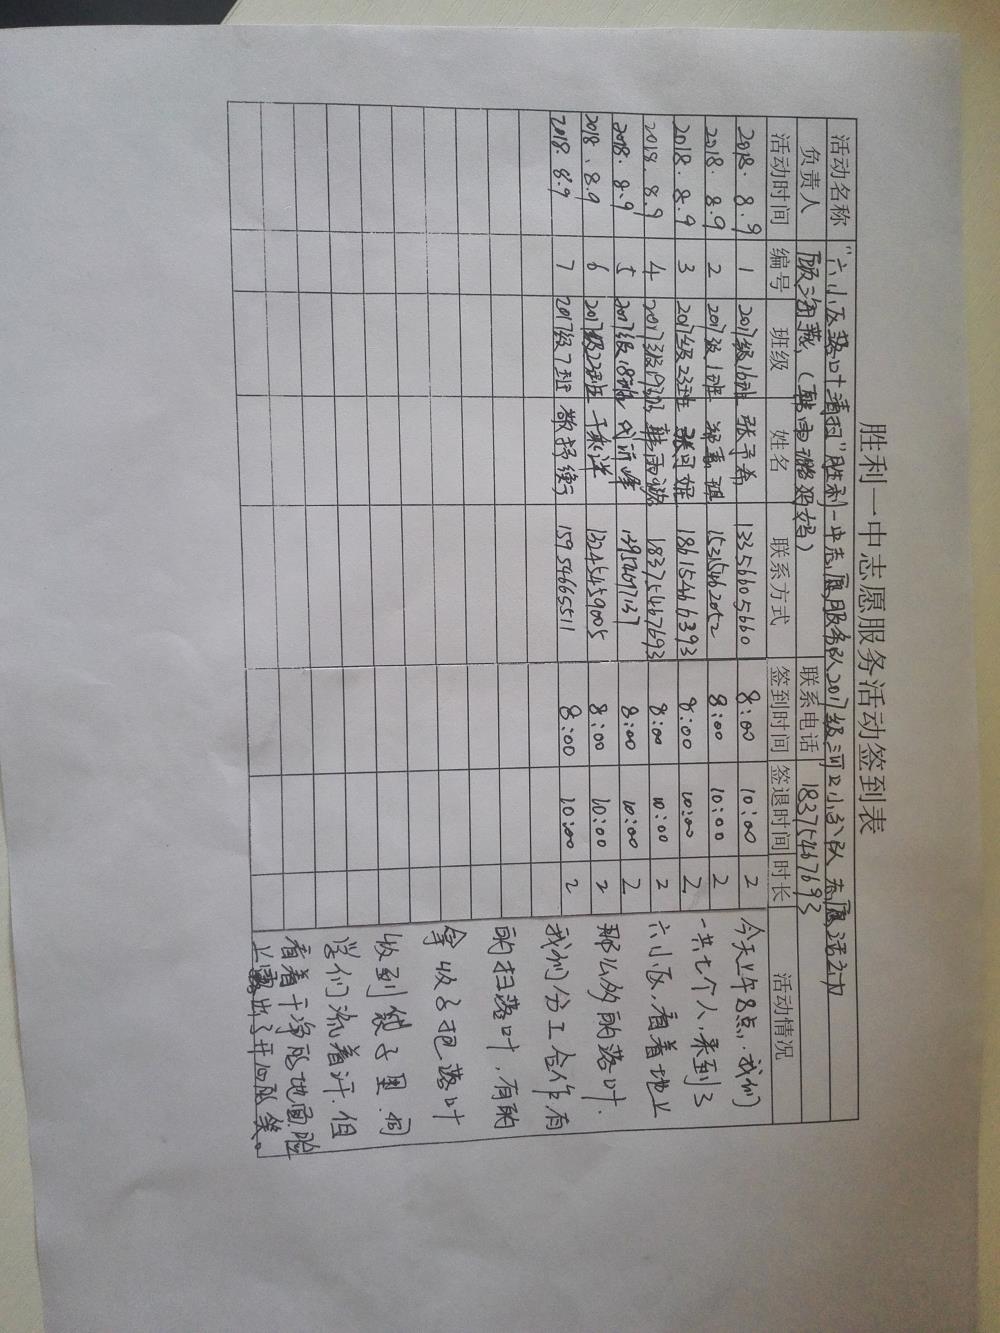 胜利一中志愿服务活动签到表
活动名称 "六小区落叶清扫"胜利一中志愿服务队2017级河口小分队志愿活动
负责人 顾海燕（韩雨潞妈妈） 联系电话 18375467693
活动时间 编号 班级 姓名 联系方式 签到时间 签退时间 时长 活动情况
2018.8.9 1 2017级16班 张予希 13356605660 8:00 10:00 2
2018.8.9 2 2017级1班 15315462052 8:00 10:00 2
2018.8.9 3 2017级23班 18615466393 8:00 10:00 2
2018.8.9 4 2017级19班 韩雨潞 18375467693 8:00 10:00 2
2018.8.9 5 2017级18班 8:00 10:00 2
2018.8.9 6 2017级22班 13245459005 8:00 10:00 2
2018.8.9 7 2017级7班 15954665511 8:00 10:00 2
今天上午8点,我们
一共七个人,来到了
六小区,看着地上
那么多的落叶.
我们分工合作,有
的扫落叶,有的
拿收子把落叶
收到袋子里.同
学们流着汗.但
看着干净的地面,脸
上露出了开心的笑。